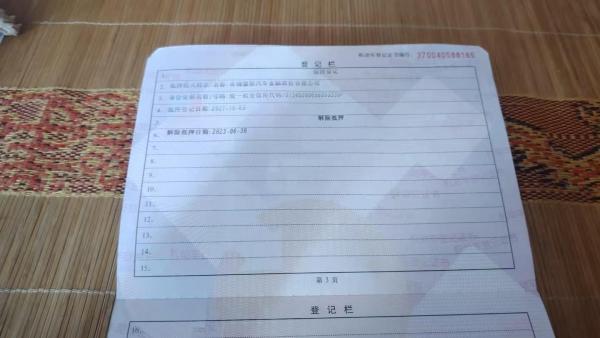 机动车登记证书编号: 370040588165
登记栏
1.
抵押登记
2. 抵押权人姓名/名称:
汽车金融有限公司
3. 身份证明名称/号码:统一社会信用代码/
4. 抵押登记日期:
5.
解除抵押
6. 解除抵押日期:2023-06-30
7.
8.
9.
10.
11.
12.
13.
14.
15.
第 3 页
登记栏
16.